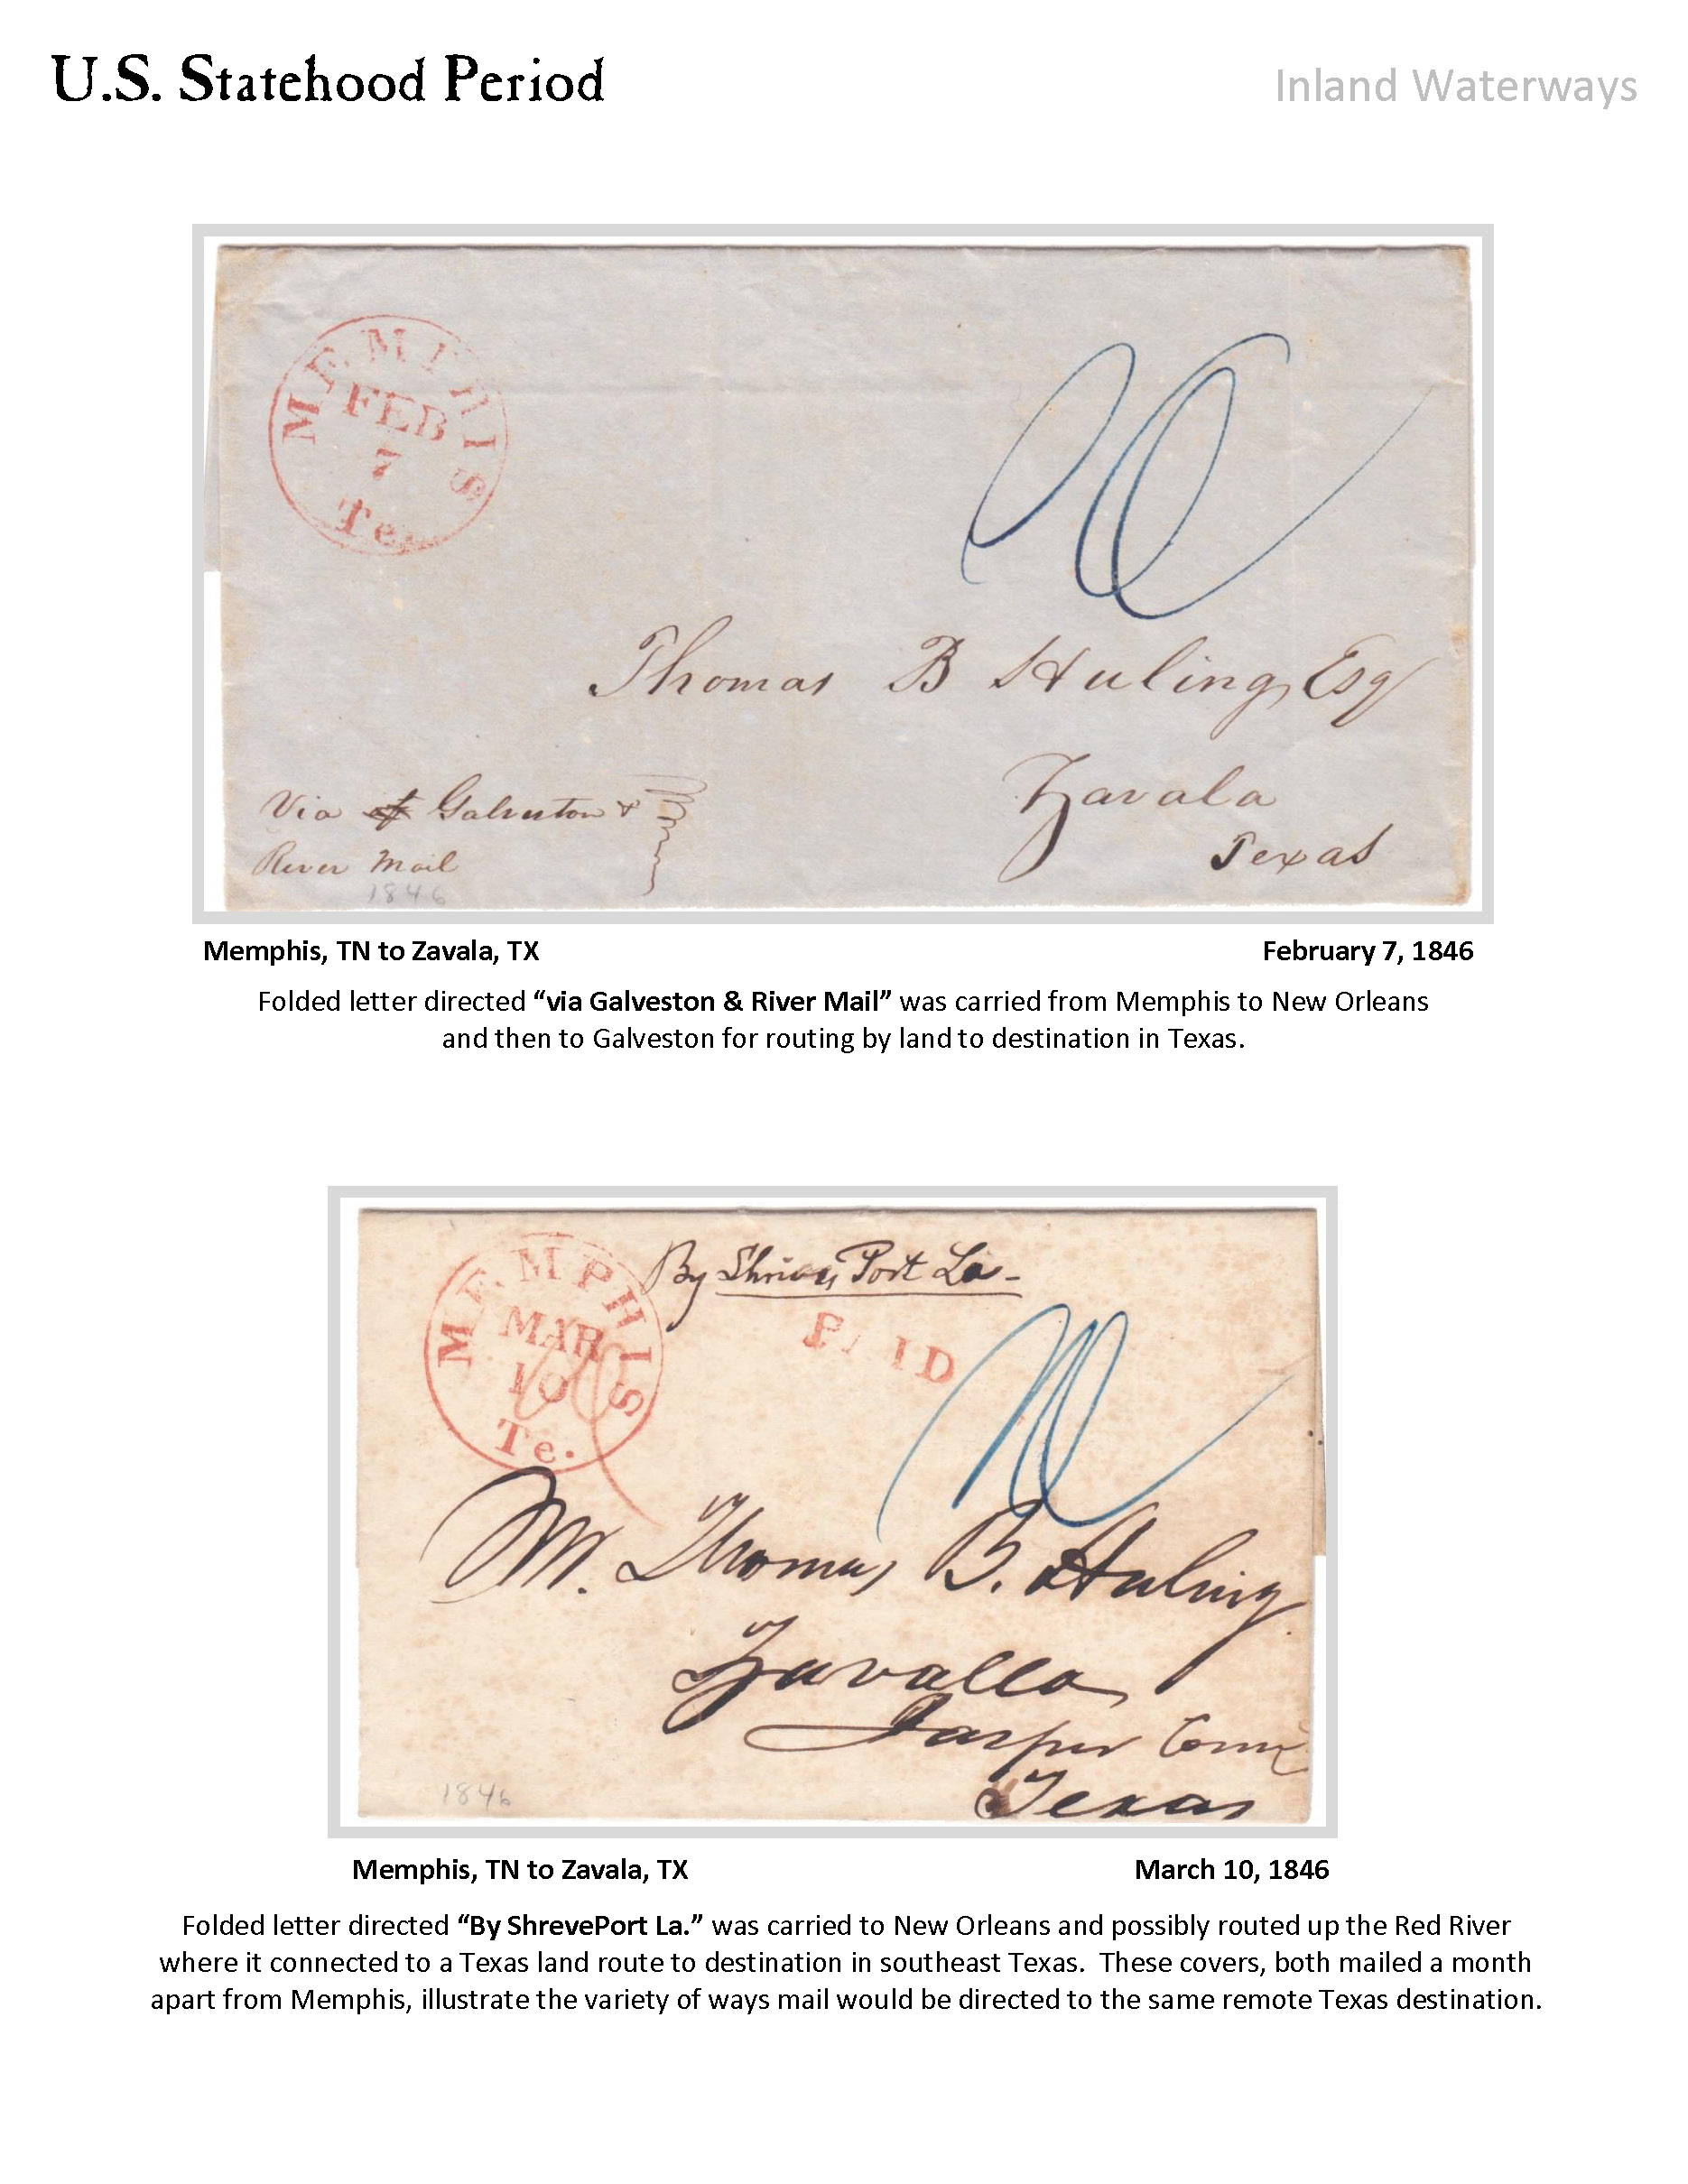 U.S. Statehood Period
Inland Waterways
MEMPHIS
FEB
7
Te.
10
Thomas B Huling, Esq
Zavala
Texas
Via Galveston &
River Mail
1846
Memphis, TN to Zavala, TX
February 7, 1846
Folded letter directed “via Galveston & River Mail” was carried from Memphis to New Orleans
and then to Galveston for routing by land to destination in Texas.
By Shreve Port La-
MEMPHIS
MAR
10
Te.
PAID
10
M. Thomas B. Huling
Zavalla
Jasper
Texas
1846
Memphis, TN to Zavala, TX
March 10, 1846
Folded letter directed “By ShrevePort La.” was carried to New Orleans and possibly routed up the Red River
where it connected to a Texas land route to destination in southeast Texas. These covers, both mailed a month
apart from Memphis, illustrate the variety of ways mail would be directed to the same remote Texas destination.